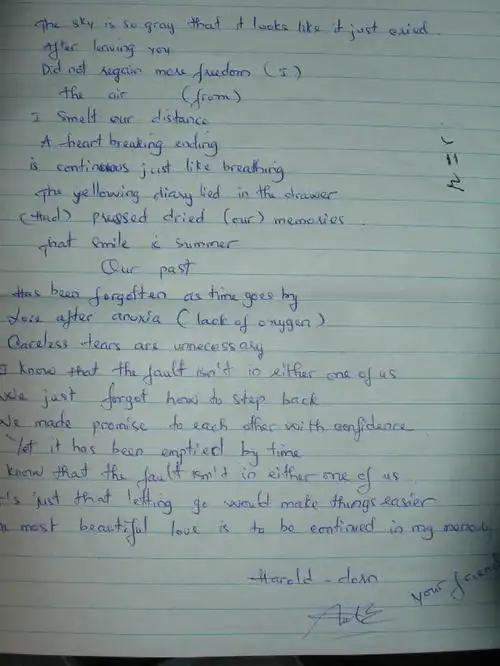 The sky is so gray that it looks like it just cried.
After leaving you
Did not regain more freedom (I)
the air (from)
I smelt our distance
A heart breaking ending
is continuous just like breathing
The yellowing diary lied in the drawer
(Had) pressed dried (our) memories.
That smile is summer
Our past
Has been forgotten as time goes by
Love after anoxia (lack of oxygen)
Careless tears are unnecessary
I know that the fault isn't in either one of us
We just forgot how to step back
We made promise to each other with confidence
Yet it has been emptied by time
know that the fault isn't in either one of us
t's just that letting go would make things easier
most beautiful love is to be continued in my memory
Harold - dorn
your friend